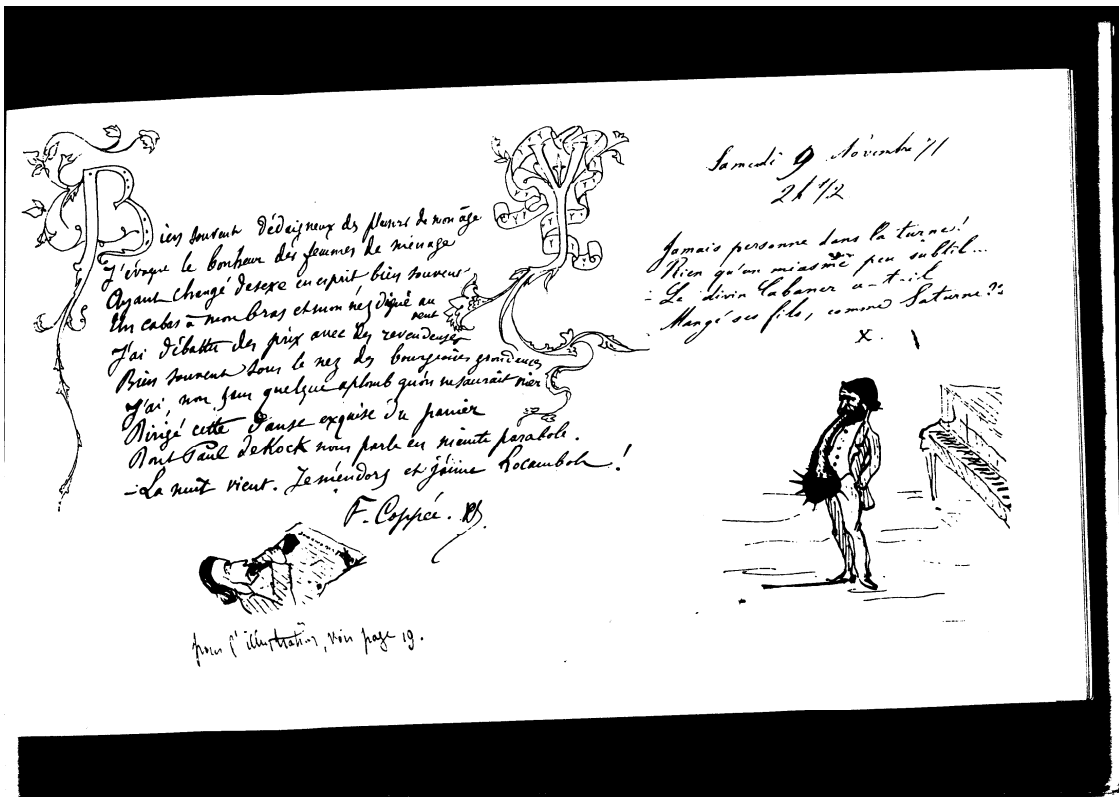 Bien souvent dédaigneux des plaisirs de mon âge
J'évoque le bonheur des femmes de ménage
Ayant changé de sexe en esprit bien souvent
Un cabas à mon bras et mon nez digne au
vent
J'ai débattu des prix avec les revendeuses
Bien souvent sous le nez des bourgeoises grondeuses
J'ai, non sans quelque aplomb qu'on ne saurait nier
Dirigé cette Danse exquise du panier
Dont Paul de Kock nous parle en mainte parabole.
-La nuit vient. Je m'endors et j'aime Rocambole !
F. Coppée.
pour l'illustration, voir page 19.
Samedi 9 Novembre 71
2h 1/2
Jamais personne dans la turne!
Rien qu'un miasme peu subtil...
- Le divin Cabaner a-t-il
Mangé ses fils, comme Saturne?
X.